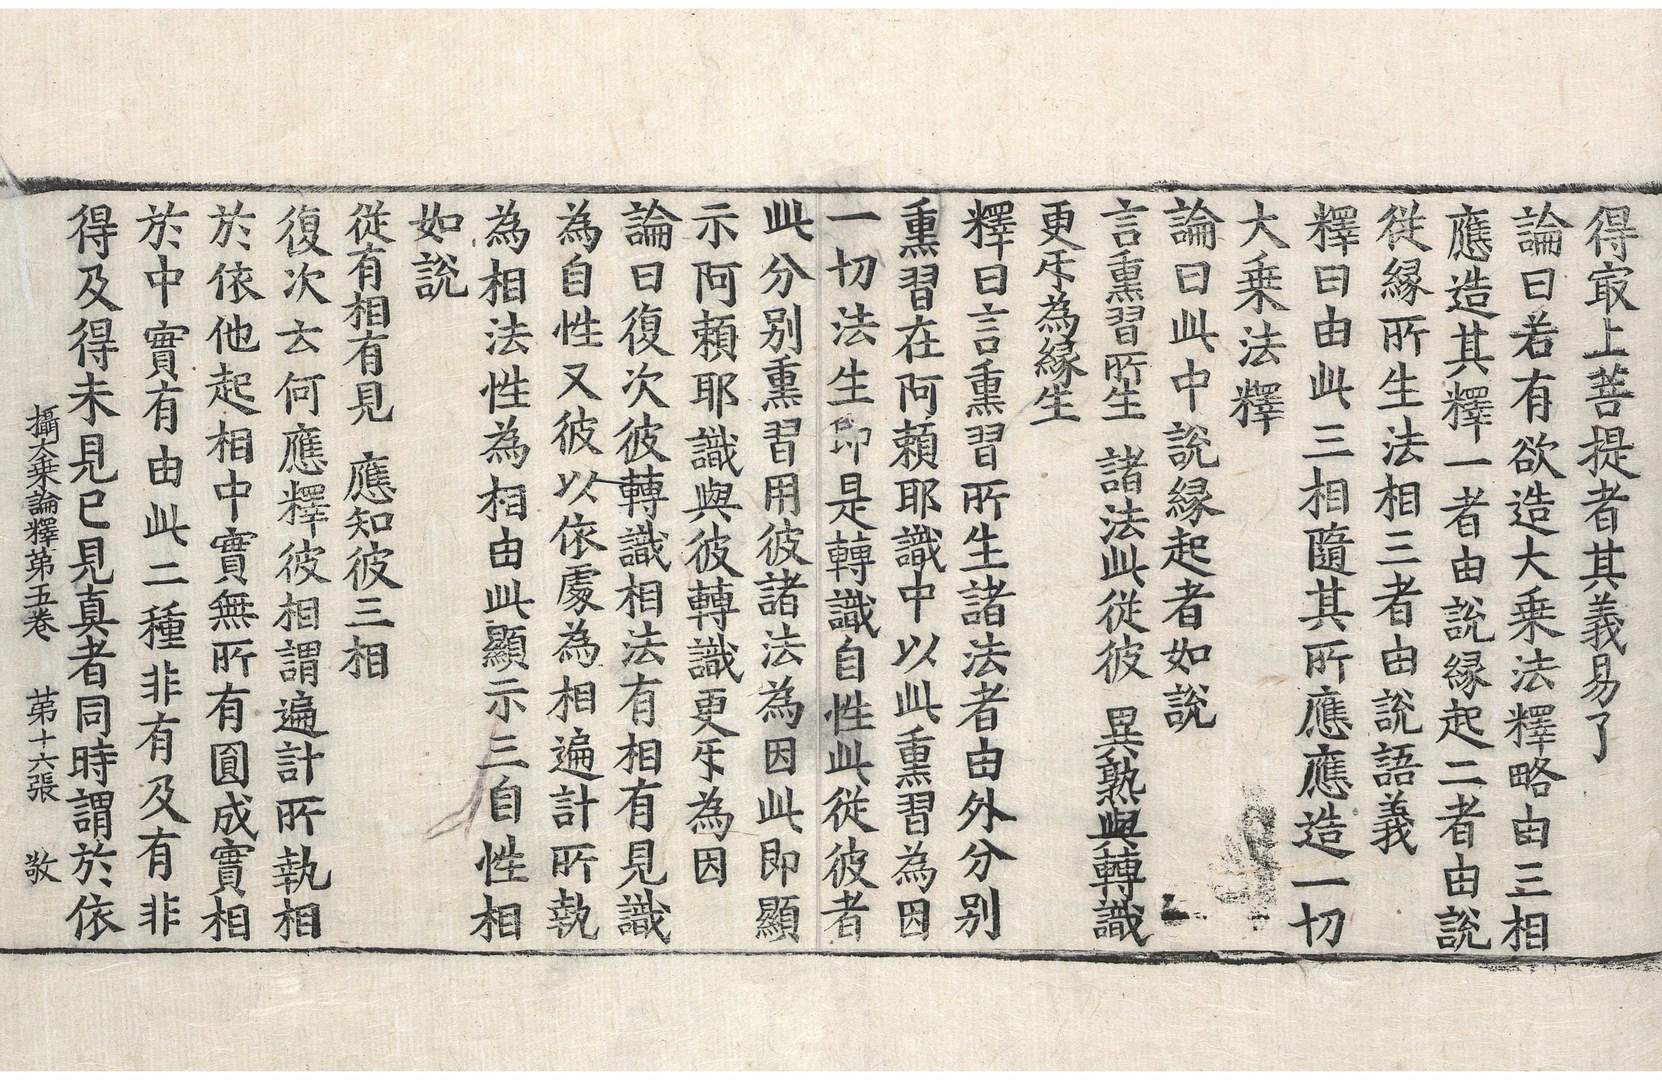 得㝡上菩提者其義易了
論曰若有欲造大乗法釋略由三相
應造其釋一者由說縁起二者由說
從縁所生法相三者由說語義
釋曰由此三相隨其所應應造一切
大乗法釋
論曰此中說縁起者如說
言熏習所生 諸法此從彼 異熟與轉識
更㸦為縁生
釋曰言熏習所生諸法者由外分別
熏習在阿頼耶識中以此熏習為因
一切法生即是轉識自性此從彼者
此分別熏習用彼諸法為因此即顯
示阿頼耶識與彼轉識更㸦為因
論曰復次彼轉識相法有相有見識
為自性又彼以依處為相遍計所執
為相法性為相由此顯示三自性相
如說
從有相有見 應知彼三相
復次云何應釋彼相謂遍計所執相
於依他起相中實無所有圓成實相
於中實有由此二種非有及有非
得及得未見已見真者同時謂於依
攝大乗論釋第五卷 第十六張 敬